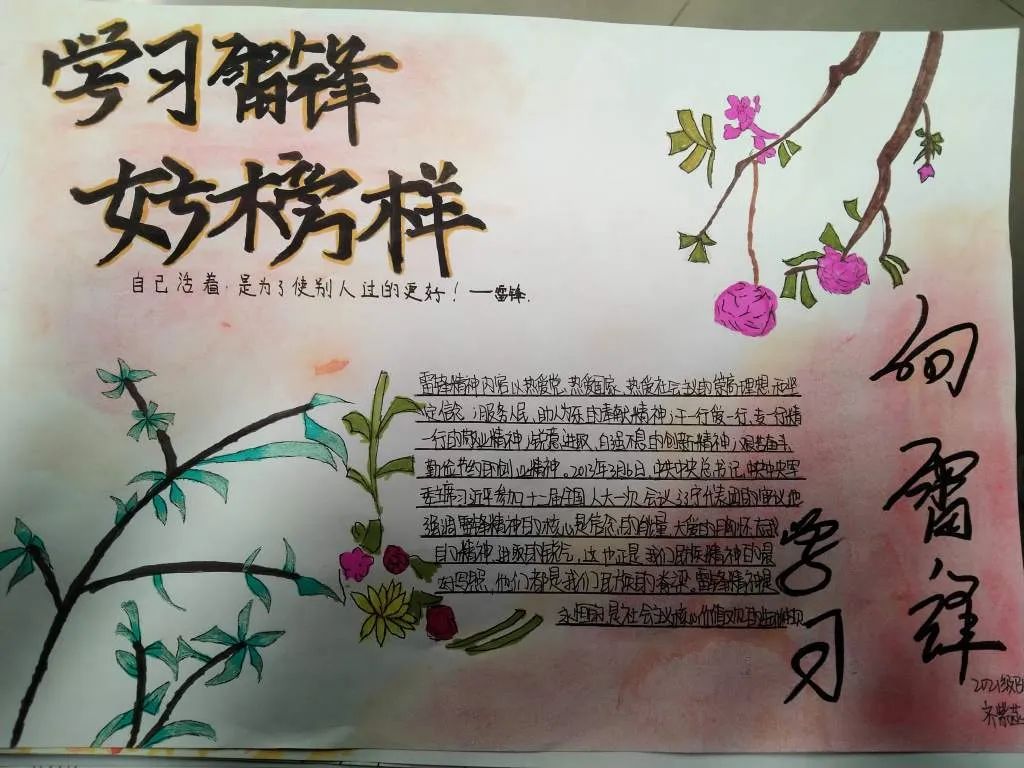 学习雷锋
好榜样
自己活着,是为了使别人过的更好!——雷锋.
雷锋精神内容以热爱党、热爱国家、热爱社会主义的崇高理想和坚
定信念;服务人民、助人为乐的奉献精神;干一行爱一行、专一行精
一行的敬业精神;锐意进取、自强不息的创新精神;艰苦奋斗、
勤俭节约的创业精神。2013年3月6日,中共中央总书记、中央军
委主席习近平参加十二届全国人大一次会议辽宁代表团的审议他
强调雷锋精神的核心是信念的能量、大爱的胸怀、忘我
的精神、进取的锐气,这也正是我们民族精神的最
好写照,他们都是我们民族的脊梁。雷锋精神是
永恒的是社会主义核心价值观的生动体现
向雷锋
学习
2021级